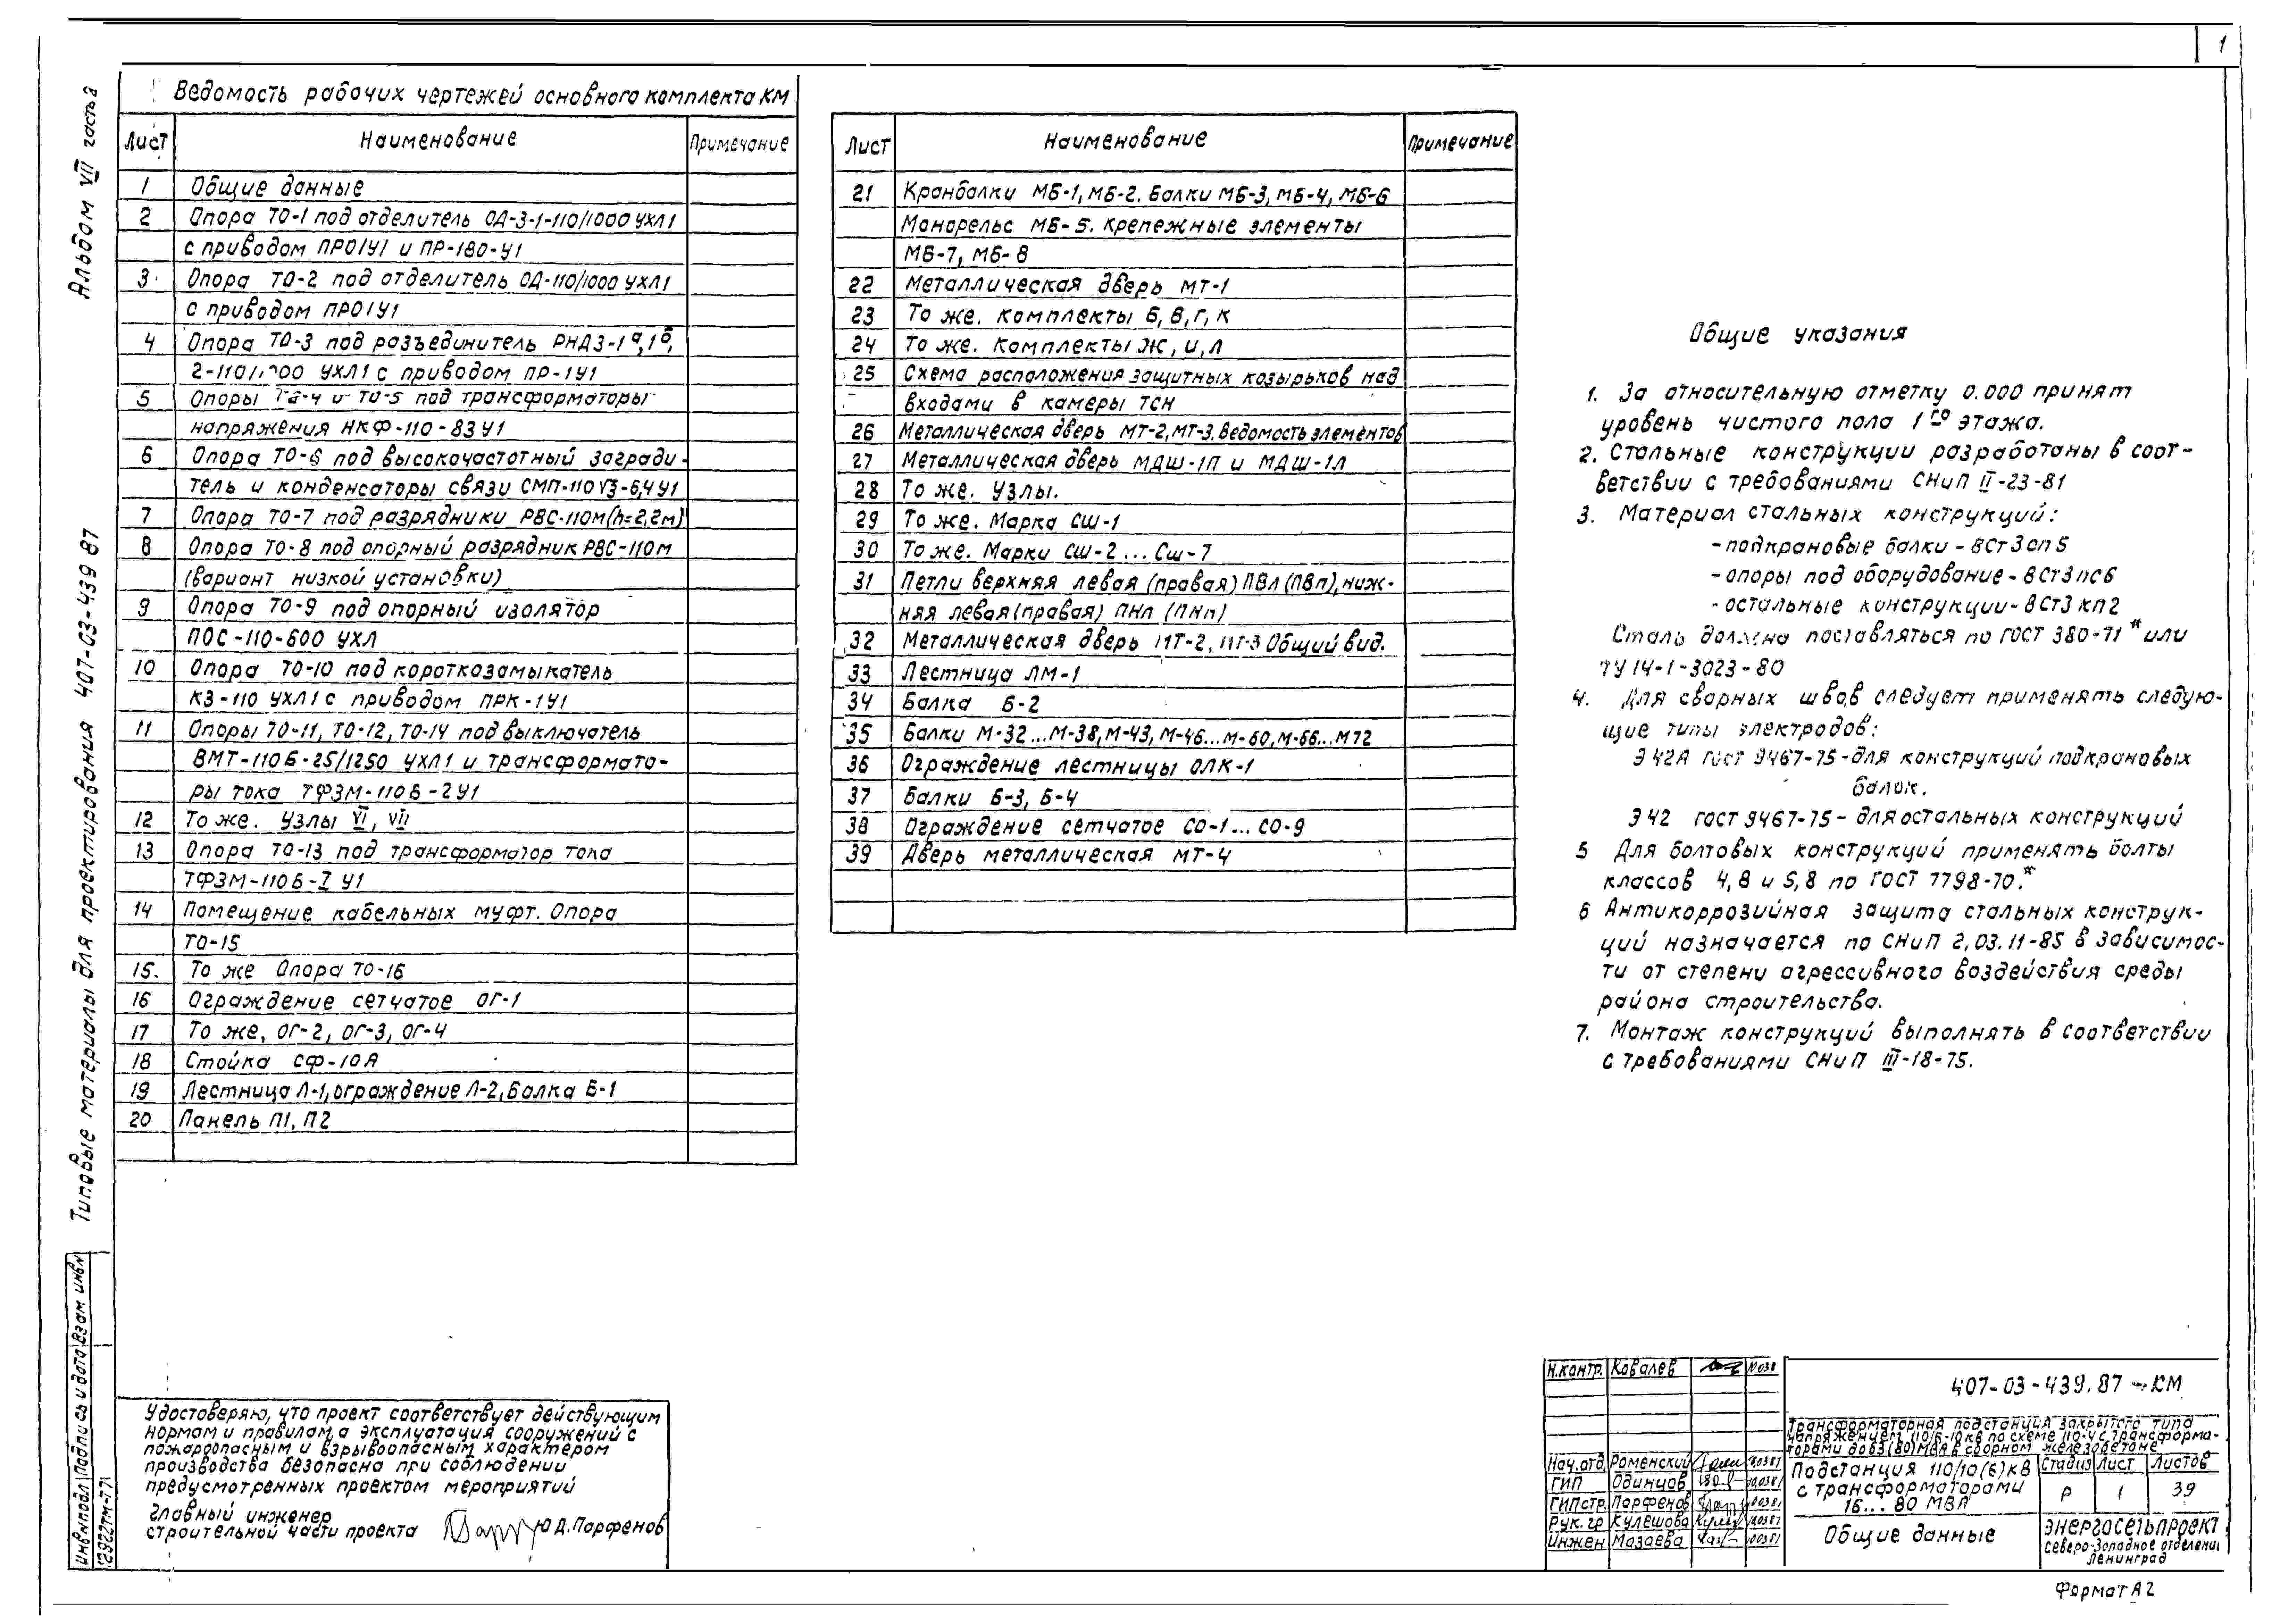 1
Альбом VII часть 2
Типовые материалы для проектирования 407-03-439 87
Ведомость рабочих чертежей основного комплекта КМ
Лист Наименование Примечание
1 Общие данные
2 Опора ТО-1 под отделитель ОД-3-1-110/1000 УХЛ1
с приводом ПРО1У1 и ПР-180-У1
3 Опора ТО-2 под отделитель ОД-110/1000 УХЛ1
с приводом ПРО1У1
4 Опора ТО-3 под разъединитель РНДЗ-1а,1б,
2-110/1000 УХЛ1 с приводом ПР-1У1
5 Опоры ТО-4 и ТО-5 под трансформаторы
напряжения НКФ-110-83У1
6 Опора ТО-6 под высокочастотный загради-
тель и конденсаторы связи СМП-110√3-6,4У1
7 Опора ТО-7 под разрядники РВС-110м(h=2,2м)
8 Опора ТО-8 под опорный разрядник РВС-110м
(вариант низкой установки)
9 Опора ТО-9 под опорный изолятор
ПОС-110-600 УХЛ
10 Опора ТО-10 под короткозамыкатель
КЗ-110 УХЛ1 с приводом ПРК-1У1
11 Опоры ТО-11, ТО-12, ТО-14 под выключатель
ВМТ-110Б-25/1250 УХЛ1 и трансформато-
ры тока ТФЗМ-110Б-2У1
12 То же. Узлы VI, VII
13 Опора ТО-13 под трансформатор тока
ТФЗМ-110Б-I У1
14 Помещение кабельных муфт. Опора
ТО-15
15. То же Опора ТО-16
16 Ограждение сетчатое ОГ-1
17 То же, ОГ-2, ОГ-3, ОГ-4
18 Стойка СФ-10А
19 Лестница Л-1, ограждение Л-2, Балка Б-1
20 Панель П1, П2
Лист Наименование Примечание
21 Кранбалки МБ-1, МБ-2. Балки МБ-3, МБ-4, МБ-6
Монорельс МБ-5. Крепежные элементы
МБ-7, МБ-8
22 Металлическая дверь МТ-1
23 То же. Комплекты Б, В, Г, К
24 То же. Комплекты Ж, И, Л
25 Схема расположения защитных козырьков над
входами в камеры ТСН
26 Металлическая дверь МТ-2, МТ-3. Ведомость элементов
27 Металлическая дверь МДШ-1П и МДШ-1Л
28 То же. Узлы.
29 То же. Марка СШ-1
30 То же. Марки СШ-2...СШ-7
31 Петли верхняя левая (правая) ПВл (ПВп), ниж-
няя левая (правая) ПНл (ПНп)
32 Металлическая дверь МТ-2, МТ-3 Общий вид.
33 Лестница ЛМ-1
34 Балка Б-2
35 Балки М-32...М-38, М-43, М-46...М-60, М-66...М72
36 Ограждение лестницы ОЛК-1
37 Балки Б-3, Б-4
38 Ограждение сетчатое СО-1...СО-9
39 Дверь металлическая МТ-4
Общие указания
1. За относительную отметку 0.000 принят
уровень чистого пола 1го этажа.
2. Стальные конструкции разработаны в соот-
ветствии с требованиями СНиП II-23-81
3. Материал стальных конструкций:
- подкрановые балки - ВСт3сп5
- опоры под оборудование - ВСт3пс6
- остальные конструкции - ВСт3кп2
Сталь должна поставляться по ГОСТ 380-71* или
ТУ 14-1-3023-80
4. Для сварных швов следует применять следую-
щие типы электродов:
Э42А ГОСТ 9467-75 - для конструкций подкрановых
балок.
Э42 ГОСТ 9467-75 - для остальных конструкций
5 Для болтовых конструкций применять болты
классов 4,8 и 5,8 по ГОСТ 7798-70.*
6 Антикоррозийная защита стальных конструк-
ций назначается по СНиП 2,03.11-85 в зависимос-
ти от степени агрессивного воздействия среды
района строительства.
7. Монтаж конструкций выполнять в соответствии
с требованиями СНиП III-18-75.
Удостоверяю, что проект соответствует действующим
нормам и правилам, а эксплуатация сооружений с
пожароопасным и взрывоопасным характером
производства безопасна при соблюдении
предусмотренных проектом мероприятий
главный инженер
строительной части проекта Ю.Д.Парфенов
Инв№подл Подпись и дата Взам инв№
12922тм-т71
Н.контр. Ковалев
Нач.отд. Роменский
ГИП Одинцов
ГИПстр. Парфенов
Рук.гр Кулешова
Инжен Мазаева
407-03-439.87-КМ
Трансформаторная подстанция закрытого типа
напряжением 110/6-10кв по схеме 110-4 с трансформа-
торами до 63(80)МВА в сборном железобетоне
Подстанция 110/10(6)кВ
с трансформаторами
16...80 МВА
Стадия Лист Листов
Р 1 39
Общие данные
ЭНЕРГОСЕТЬПРОЕКТ
Северо-Западное отделение
Ленинград
Формат А2